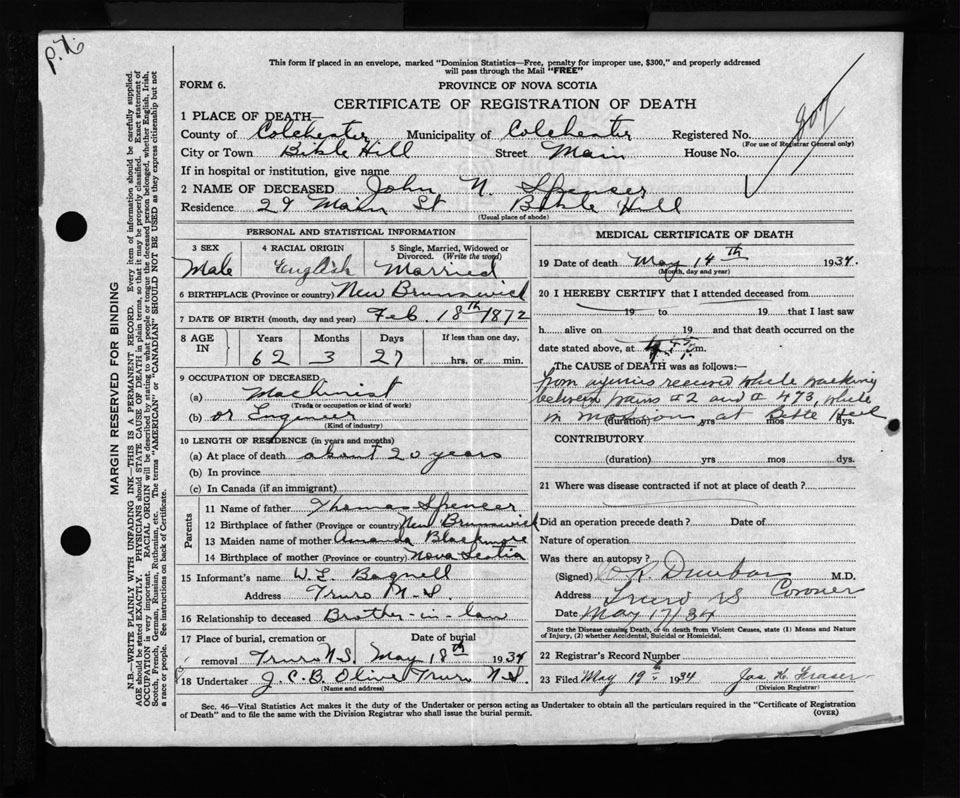 P.X.
This form if placed in an envelope, marked "Dominion Statistics—Free, penalty for improper use, $300," and properly addressed
will pass through the Mail "FREE"
FORM 6.
PROVINCE OF NOVA SCOTIA
CERTIFICATE OF REGISTRATION OF DEATH
1 PLACE OF DEATH—
County of Colchester Municipality of Colchester Registered No.
(For use of Registrar General only)
City or Town Bible Hill Street Main House No.
If in hospital or institution, give name
2 NAME OF DECEASED John N. Spenser
Residence 29 Main St Bible Hill
(Usual place of abode)
MARGIN RESERVED FOR BINDING
N.B.—WRITE PLAINLY WITH UNFADING INK—THIS IS A PERMANENT RECORD. Every item of information should be carefully supplied.
AGE should be stated EXACTLY. PHYSICIANS should STATE CAUSE OF DEATH in plain terms, so that it may be properly classified. Exact statement of
OCCUPATION is very important. RACIAL ORIGIN will be described by stating to what people or tongue the deceased person belonged, whether English, Irish,
Scotch, French, German, Russian, Ruthenian, etc. The terms "AMERICAN" or "CANADIAN" SHOULD NOT BE USED as they express citizenship but not
a race or people. See instructions on back of Certificate.
PERSONAL AND STATISTICAL INFORMATION
3 SEX 4 RACIAL ORIGIN 5 Single, Married, Widowed or
Divorced. (Write the word)
Male English Married
6 BIRTHPLACE (Province or country) New Brunswick
7 DATE OF BIRTH (month, day and year) Feb. 18th 1872
8 AGE IN Years Months Days If less than one day,
62 3 27 hrs. or min.
9 OCCUPATION OF DECEASED
(a) Machinist
(Trade or occupation or kind of work)
(b) or Engineer
(Kind of industry)
10 LENGTH OF RESIDENCE (in years and months)
(a) At place of death about 20 years
(b) In province
(c) In Canada (if an immigrant)
Parents
11 Name of father Thomas Spencer
12 Birthplace of father (Province or country) New Brunswick
13 Maiden name of mother Amanda Blackmore
14 Birthplace of mother (Province or country) Nova Scotia
15 Informant's name W. L. Bagnell
Address Truro N.S.
16 Relationship to deceased Brother-in-law
17 Place of burial, cremation or Date of burial
removal Truro N.S. May 18th 1934
18 Undertaker J. C. B. Olive Truro N.S
(Name and address)
MEDICAL CERTIFICATE OF DEATH
19 Date of death May 14th 1934.
(Month, day and year)
20 I HEREBY CERTIFY that I attended deceased from
19 to 19 that I last saw
h alive on 19 and that death occurred on the
date stated above, at m.
The CAUSE of DEATH was as follows:—
from injuries received while walking
between trains #2 and # 473, while
in motion at Bible Hill
(duration) yrs mos dys.
CONTRIBUTORY
(duration) yrs mos dys.
21 Where was disease contracted if not at place of death?
Did an operation precede death? Date of
Nature of operation
Was there an autopsy?
(Signed) Dunbar M.D.
Address Truro NS Coroner
Date May 17/34
State the Disease causing Death, or in death from Violent Causes, state (1) Means and Nature
of Injury, (2) whether Accidental, Suicidal or Homicidal.
22 Registrar's Record Number
23 Filed May 19th 1934 Jas. H. Fraser
(Division Registrar)
Sec. 46—Vital Statistics Act makes it the duty of the Undertaker or person acting as Undertaker to obtain all the particulars required in the "Certificate of Registration
of Death" and to file the same with the Division Registrar who shall issue the burial permit. (OVER)